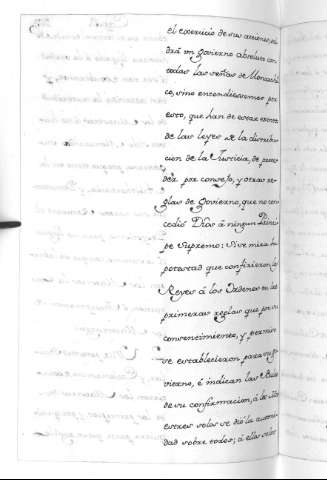 el exercicio de sus acciones, ni
drá un Govierno absoluto con
todas las señas de Monarchi
co, sino entendiessemos por
esto, que han de estar exentos
de las leyes de la distribu
cion de la Justicia, de proce
der por consejo, y otras re
glas de Govierno, que no con
cedió Dios á ningun Princi
pe Supremo: Si se mira la
potestad que confirieron los
Reyes á las Ordenes en las
primeras reglas que por su
convencimiento, y permiso
se establecieron para su go
vierno, é indican las Bulas
de su confirmacion, á los Ma
estres solos se dió la autori
dad sobre todos; á ellos solos